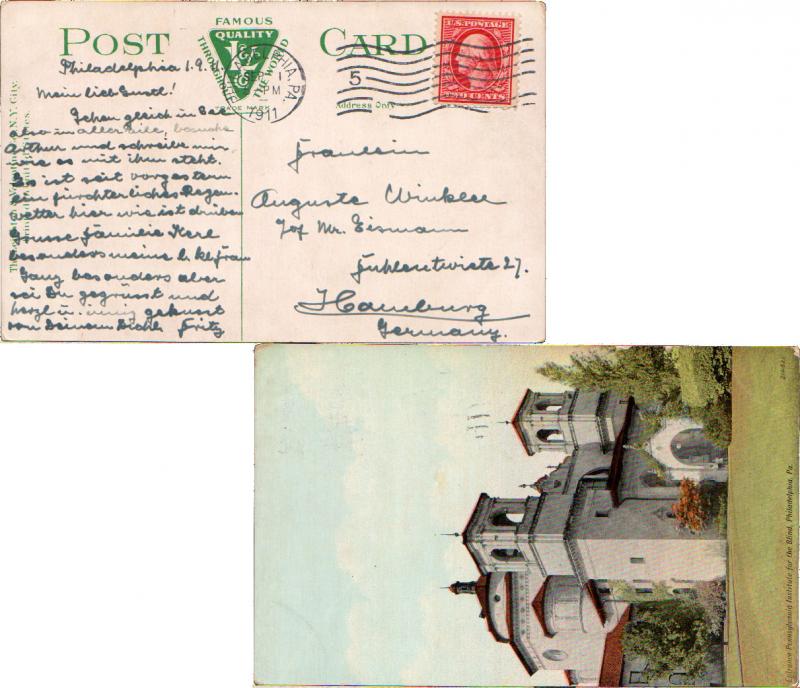 POST CARD
FAMOUS
QUALITY
THROUGHOUT THE WORLD
TRADE MARK
PHILADELPHIA, PA.
SEP 1
PM
1911
5
U.S. POSTAGE
TWO CENTS
Address Only
N.Y. City.
Philadelphia 1.9.11
Mein lieb Gustl!
Gehen gleich in See
also in aller Eile, besuche
Arthur und schreibe mir,
wie es mit ihm steht.
Es ist seit vorgestern
ein fürchterliches Regen-
wetter hier wie ist drüben
Grüsse Familie Karl
besonders meine b. kl. Frau
Ganz besonders aber
sei Du gegrüsst und
herzl u. innig geküsst
von Deinem Dichl. Fritz
Fräulein
Auguste Winkler
Mr. Eismann
Fuhlentwiete 27.
Hamburg
Germany.
Entrance Pennsylvania Institute for the Blind, Philadelphia, Pa.